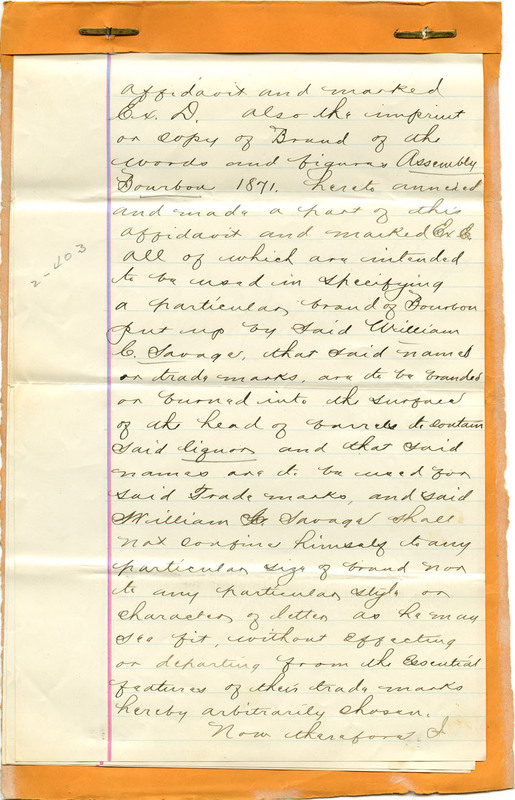 affidavit and marked
Ex. D. also the imprint
or copy of Brand of the
words and figures Assembly
Bourbon 1871. hereto annexed
and made a part of this
affidavit and marked Ex E.
all of which are intended
to be used in specifying
a particular brand of Bourbon
put up by said William
C. Savage, that said names
or trade marks, are to be branded
or burned into the surface
of the head of barrels to contain
said liquor and that said
names are to be used for
said Trade marks, and said
William C. Savage shall
not confine himself to any
particular size of brand nor
to any particular style or
character of letter as he may
see fit, without effecting
or departing from the essential
features of their trade marks
hereby arbitrarily chosen.
Now therefore I
2-403